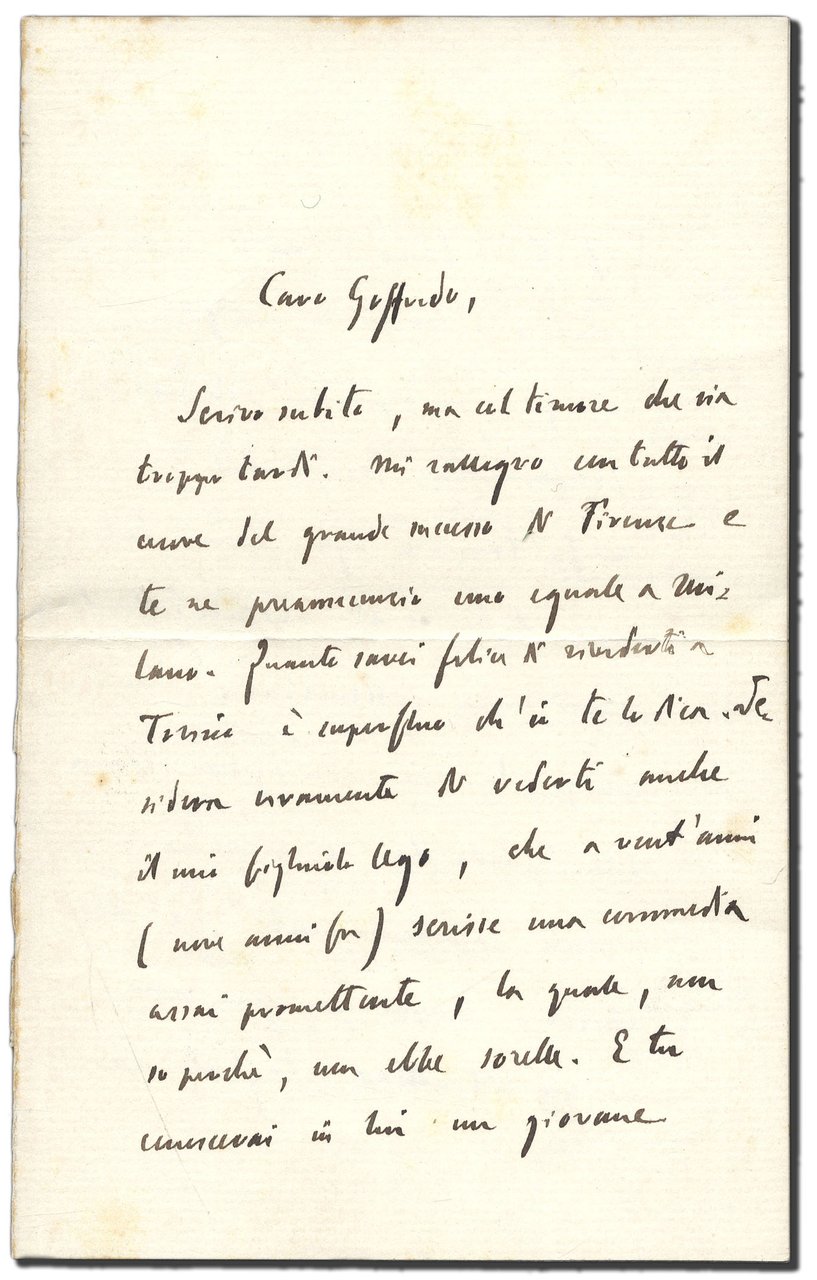 Caro Goffredo,
Scrivo subito, ma col timore che sia
troppo tardi. Mi rallegro con tutto il
cuore del grande successo di Firenze e
te ne preannuncio uno eguale a Mi-
lano. Quanto sarei felice di rivederti a
Torino è superfluo ch'io te lo dica. De-
sidera vivamente di vederti anche
il mio figliuolo Ugo, che a vent'anni
(nove anni fa) scrisse una commedia
assai promettente, la quale, non
so perchè, non ebbe sorelle. E tu
conoscerai in lui un giovane